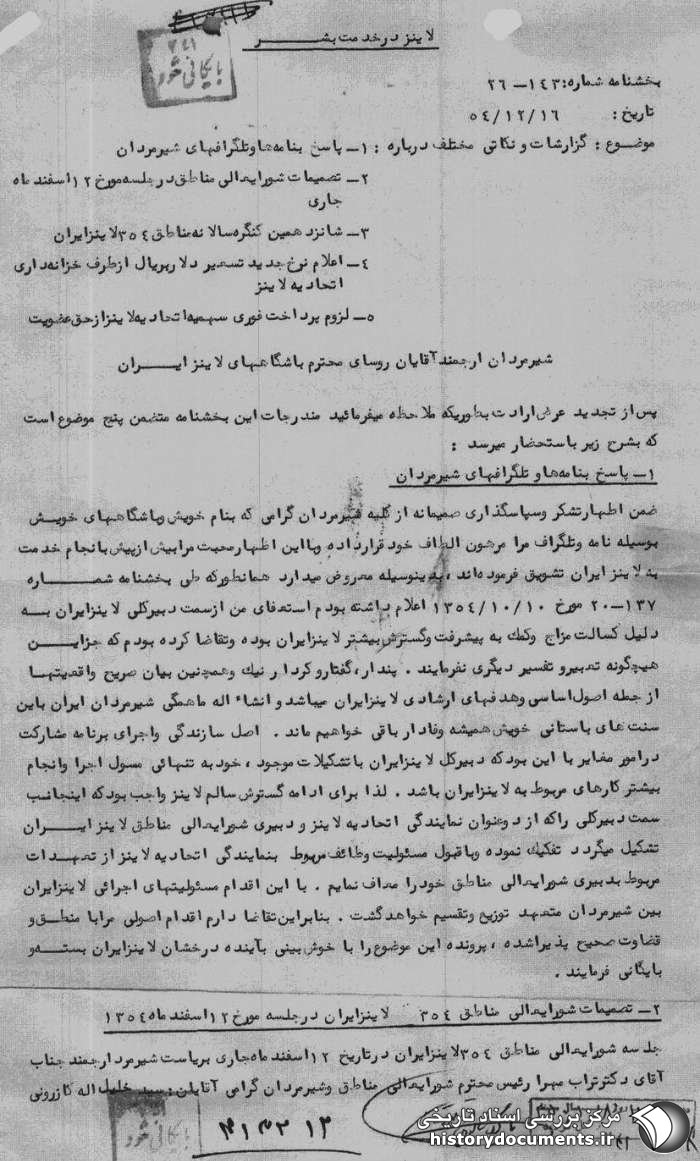 لاینز در خدمت بشر
بایگانی شود
بخشنامه شماره: ۱۴۳-۲۶
تاریخ: ۵۴/۱۲/۱۶
موضوع: گزارشات و نکاتی مختلف درباره: ۱- پاسخ بنامه‌ها و تلگرافهای شیرمردان
۲- تصمیمات شورایعالی مناطق در جلسه مورخ ۱۲ اسفند ماه
جاری
۳- شانزدهمین کنگره سالانه مناطق ۳۵۴ لاینز ایران
۴- اعلام نرخ جدید تسعیر دلار بریال از طرف خزانه‌داری
اتحادیه لاینز
۵- لزوم پرداخت فوری سهمیه اتحادیه لاینز از حق عضویت
شیرمردان ارجمند آقایان روسای محترم باشگاههای لاینز ایران
پس از تجدید عرض ارادت بطوریکه ملاحظه میفرمائید مندرجات این بخشنامه متضمن پنج موضوع است
که بشرح زیر باستحضار میرسد :
۱- پاسخ بنامه‌ها و تلگرافهای شیرمردان
ضمن اظهار تشکر و سپاسگذاری صمیمانه از کلیه شیرمردان گرامی که بنام خویش و باشگاههای خویش
بوسیله نامه و تلگراف مرا مرهون الطاف خود قرار داده و با این اظهار محبت مرا بیش از پیش بانجام خدمت
به لاینز ایران تشویق فرموده‌اند ، بدینوسیله معروض میدارد همانطور که طی بخشنامه شماره
۱۳۷-۲۰ مورخ ۱۳۵۴/۱۰/۱۰ اعلام داشته بودم استعفای من از سمت دبیرکلی لاینز ایران به
دلیل کسالت مزاج و کمک به پیشرفت و گسترش بیشتر لاینز ایران بوده و تقاضا کرده بودم که جز این
هیچگونه تعبیر و تفسیر دیگری نفرمایند . پندار ، گفتار و کردار نیک و همچنین بیان صریح واقعیتها
از جمله اصول اساسی و هدفهای ارشادی لاینز ایران میباشد و انشاء اله ما همگی شیرمردان ایران باین
سنت‌های باستانی خویش همیشه وفادار باقی خواهیم ماند . اصل سازندگی و اجرای برنامه مشارکت
در امور مغایر با این بود که دبیرکل لاینز ایران با تشکیلات موجود ، خود به تنهائی مسول اجرا و انجام
بیشتر کارهای مربوط به لاینز ایران باشد . لذا برای ادامه گسترش سالم لاینز واجب بود که اینجانب
سمت دبیرکلی را که از دو عنوان نمایندگی اتحادیه لاینز و دبیری شورایعالی مناطق لاینز ایران
تشکیل میگردد تفکیک نموده و با قبول مسئولیت وظائف مربوط بنمایندگی اتحادیه لاینز از تعهدات
مربوط بدبیری شورایعالی مناطق خود را معاف نمایم . با این اقدام مسئولیتهای اجرائی لاینز ایران
بین شیرمردان متعهد توزیع و تقسیم خواهد گشت . بنابراین تقاضا دارم اقدام اصولی مرا با منطق و
قضاوت صحیح پذیرا شده ، پرونده این موضوع را با خوش بینی بآینده درخشان لاینز ایران بسته و
بایگانی فرمایند .
۲- تصمیمات شورایعالی مناطق ۳۵۴ لاینز ایران در جلسه مورخ ۱۲ اسفند ماه ۱۳۵۴
جلسه شورایعالی مناطق ۳۵۴ لاینز ایران در تاریخ ۱۲ اسفند ماه جاری بریاست شیرمرد ارجمند جناب
آقای دکتر تراب مهرا رئیس محترم شورایعالی مناطق و شیرمردان گرامی آقایان : سید خلیل اله کازرونی
بایگانی شود
مرکز بررسی اسناد تاریخی
historydocuments.ir